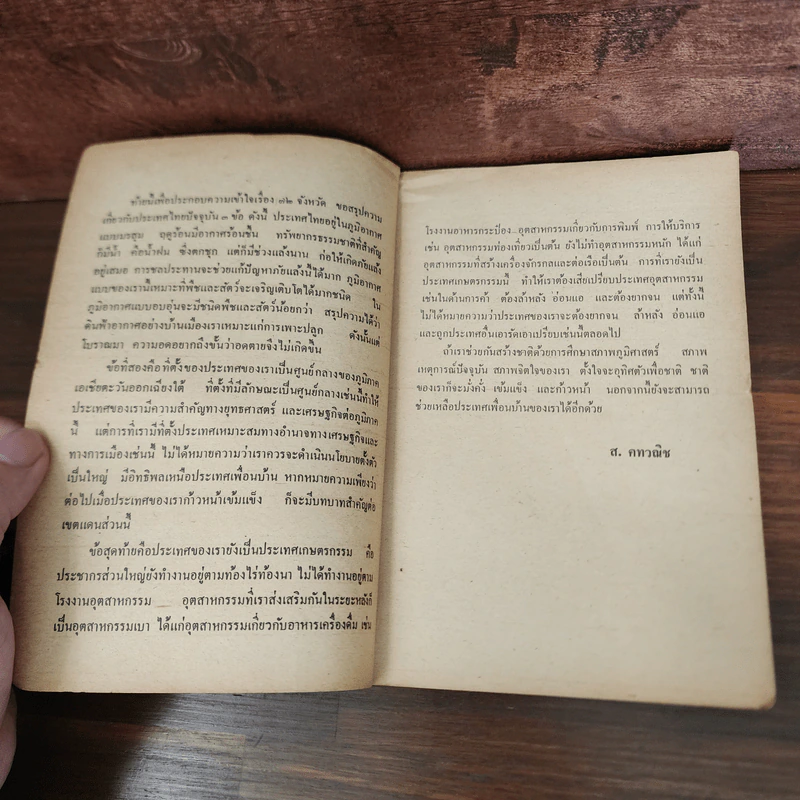 ท้ายนี้เพื่อประกอบความเข้าใจเรื่อง ๗๒ จังหวัด ขอสรุปความ
เกี่ยวกับประเทศไทยปัจจุบัน ๓ ข้อ ดังนี้ ประเทศไทยอยู่ในภูมิอากาศ
แบบมรสุม ฤดูร้อนมีอากาศร้อนชื้น ทรัพยากรธรรมชาติที่สำคัญ
ก็มีน้ำ คือน้ำฝน ซึ่งตกชุก แต่ก็มีช่วงแล้งนาน ก่อให้เกิดภัยแล้ง
อยู่เสมอ การชลประทานจะช่วยแก้ปัญหาภัยแล้งนี้ได้มาก ภูมิอากาศ
แบบของเรานี้เหมาะที่พืชและสัตว์จะเจริญเติบโตได้มากชนิด ใน
ภูมิอากาศแบบอบอุ่นจะมีชนิดพืชและสัตว์น้อยกว่า สรุปความได้ว่า
ดินฟ้าอากาศอย่างบ้านเมืองเราเหมาะแก่การเพาะปลูก ดังนั้นแต่
โบราณมา ความอดอยากถึงขั้นว่าอดตายจึงไม่เกิดขึ้น
ข้อที่สองคือที่ตั้งของประเทศเราเป็นศูนย์กลางของภูมิภาค
เอเชียตะวันออกเฉียงใต้ ที่ตั้งที่มีลักษณะเป็นศูนย์กลางเช่นนี้ทำให้
ประเทศของเรามีความสำคัญทางยุทธศาสตร์ และเศรษฐกิจต่อภูมิภาค
นี้ แต่การที่เรามีที่ตั้งประเทศเหมาะสมทางอำนาจทางเศรษฐกิจและ
ทางการเมืองเช่นนี้ ไม่ได้หมายความว่าเราควรจะดำเนินนโยบายตั้งตัว
เป็นใหญ่ มีอิทธิพลเหนือประเทศเพื่อนบ้าน หากหมายความเพียงว่า
ต่อไปเมื่อประเทศของเราก้าวหน้าเข้มแข็ง ก็จะมีบทบาทสำคัญต่อ
เขตแดนส่วนนี้
ข้อสุดท้ายคือประเทศของเรายังเป็นประเทศเกษตรกรรม คือ
ประชากรส่วนใหญ่ยังทำงานอยู่ตามท้องไร่ท้องนา ไม่ได้ทำงานอยู่ตาม
โรงงานอุตสาหกรรม อุตสาหกรรมที่เราส่งเสริมกันในระยะหลังก็
เป็นอุตสาหกรรมเบา ได้แก่อุตสาหกรรมเกี่ยวกับอาหารเครื่องดื่ม เช่น
โรงงานอาหารกระป๋อง อุตสาหกรรมเกี่ยวกับการพิมพ์ การให้บริการ
เช่น อุตสาหกรรมท่องเที่ยวเป็นต้น ยังไม่ทำอุตสาหกรรมหนัก ได้แก่
อุตสาหกรรมที่สร้างเครื่องจักรกลและต่อเรือเป็นต้น การที่เรายังเป็น
ประเทศเกษตรกรรมนี้ ทำให้เราต้องเสียเปรียบประเทศอุตสาหกรรม
เช่นในด้านการค้า ต้องล้าหลัง อ่อนแอ และต้องยากจน แต่ทั้งนี้
ไม่ได้หมายความว่าประเทศของเราจะต้องยากจน ล้าหลัง อ่อนแอ
และถูกประเทศอื่นเอารัดเอาเปรียบเช่นนี้ตลอดไป
ถ้าเราช่วยกันสร้างชาติด้วยการศึกษาสภาพภูมิศาสตร์ สภาพ
เหตุการณ์ปัจจุบัน สภาพจิตใจของเรา ตั้งใจจะอุทิศตัวเพื่อชาติ ชาติ
ของเราก็จะมั่งคั่ง เข้มแข็ง และก้าวหน้า นอกจากนี้ยังจะสามารถ
ช่วยเหลือประเทศเพื่อนบ้านของเราได้อีกด้วย
ส. คทวณิช